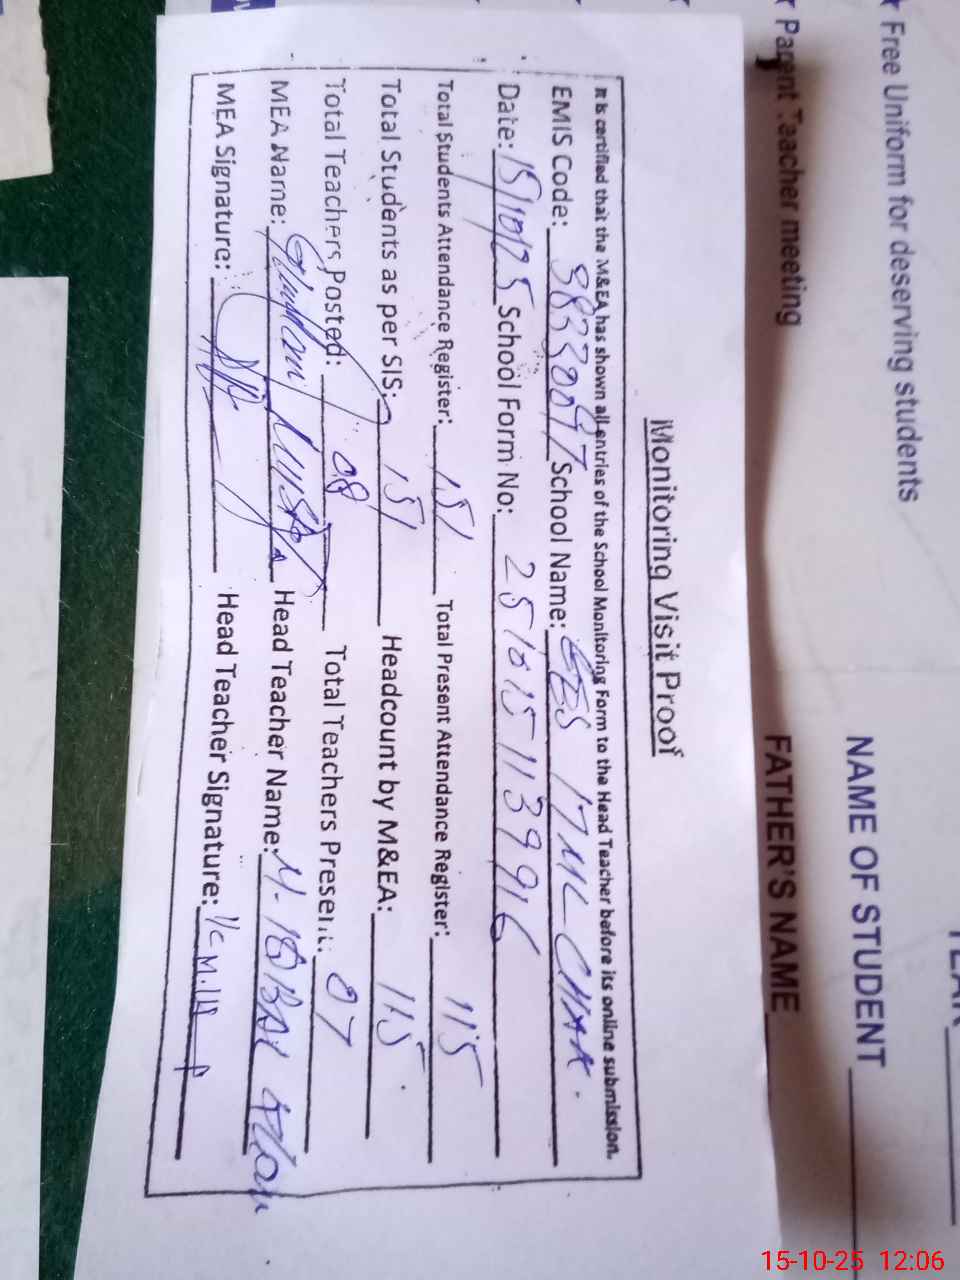 Free Uniform for deserving students
Parent Teacher meeting
NAME OF STUDENT
FATHER'S NAME
Monitoring Visit Proof
It is certified that the M&EA has shown all entries of the School Monitoring Form to the Head Teacher before its online submission.
EMIS Code: 38330097 School Name: GES 17ML CHAK.
Date: 15/10/25 School Form No: 251015113996
Total Students Attendance Register: 151 Total Present Attendance Register: 115
Total Students as per SIS: 151 Headcount by M&EA: 115
Total Teachers Posted: 08 Total Teachers Present: 07
MEA Name: Ghulam Head Teacher Name: M. IQBAL
MEA Signature: Head Teacher Signature:
15-10-25 12:06